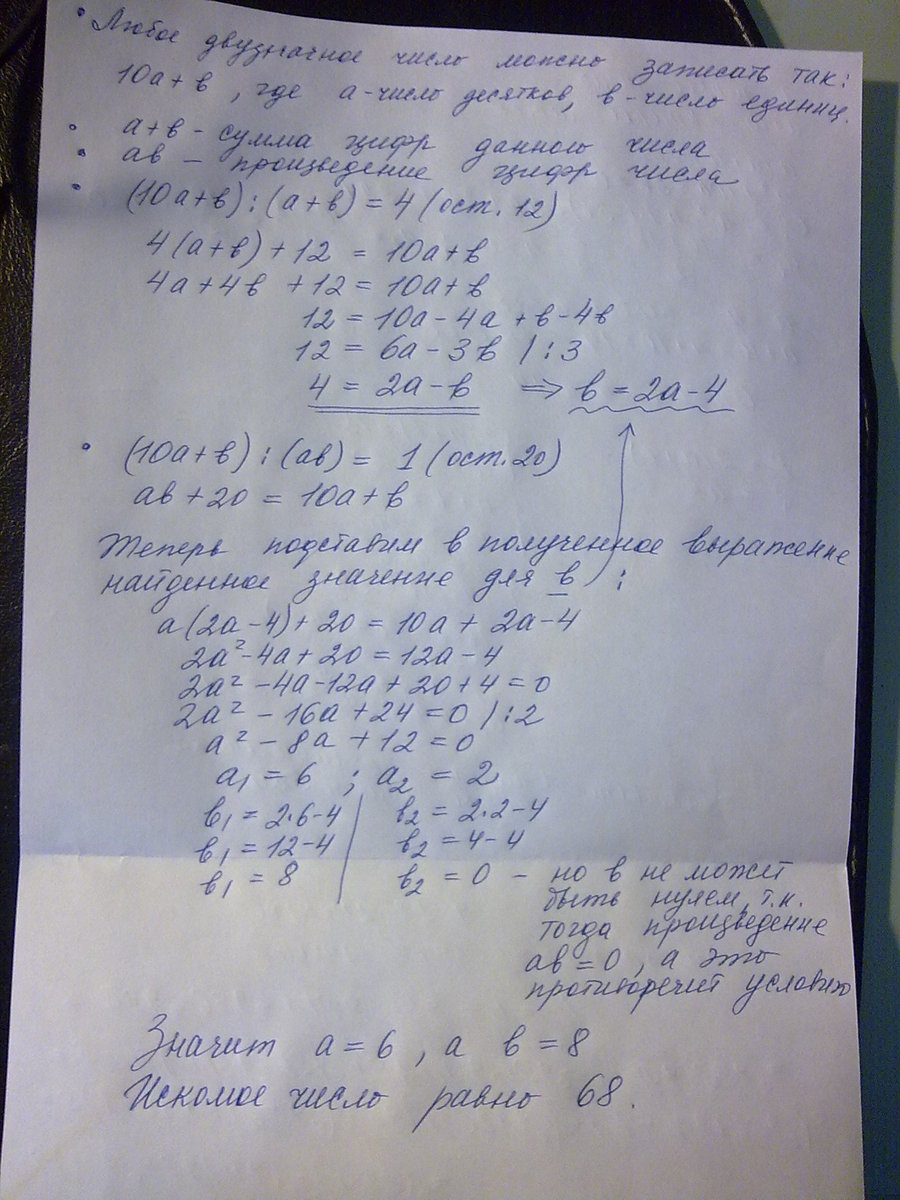 • Любое двузначное число можно записать так:
10а+в, где а-число десятков, в-число единиц.
• а+в - сумма цифр данного числа
• ав - произведение цифр числа
• (10а+в):(а+в) = 4 (ост. 12)
4(а+в)+12 = 10а+в
4а+4в +12 = 10а+в
12 = 10а-4а +в-4в
12 = 6а-3в /:3
4 = 2а-в ⇒ в = 2а-4
• (10а+в):(ав) = 1 (ост. 20)
ав+20 = 10а+в
Теперь подставим в полученное выражение
найденное значение для в :
а(2а-4)+20 = 10а+2а-4
2а²-4а+20 = 12а-4
2а²-4а-12а+20+4=0
2а²-16а+24=0 /:2
а²-8а+12=0
а₁ = 6 ; а₂ = 2
в₁ = 2·6-4 в₂ = 2·2-4
в₁ = 12-4 в₂ = 4-4
в₁ = 8 в₂ = 0 - но в не может
быть нулем, т.к.
тогда произведение
ав=0, а это
противоречит условию
Значит а=6, а в=8
Искомое число равно 68.